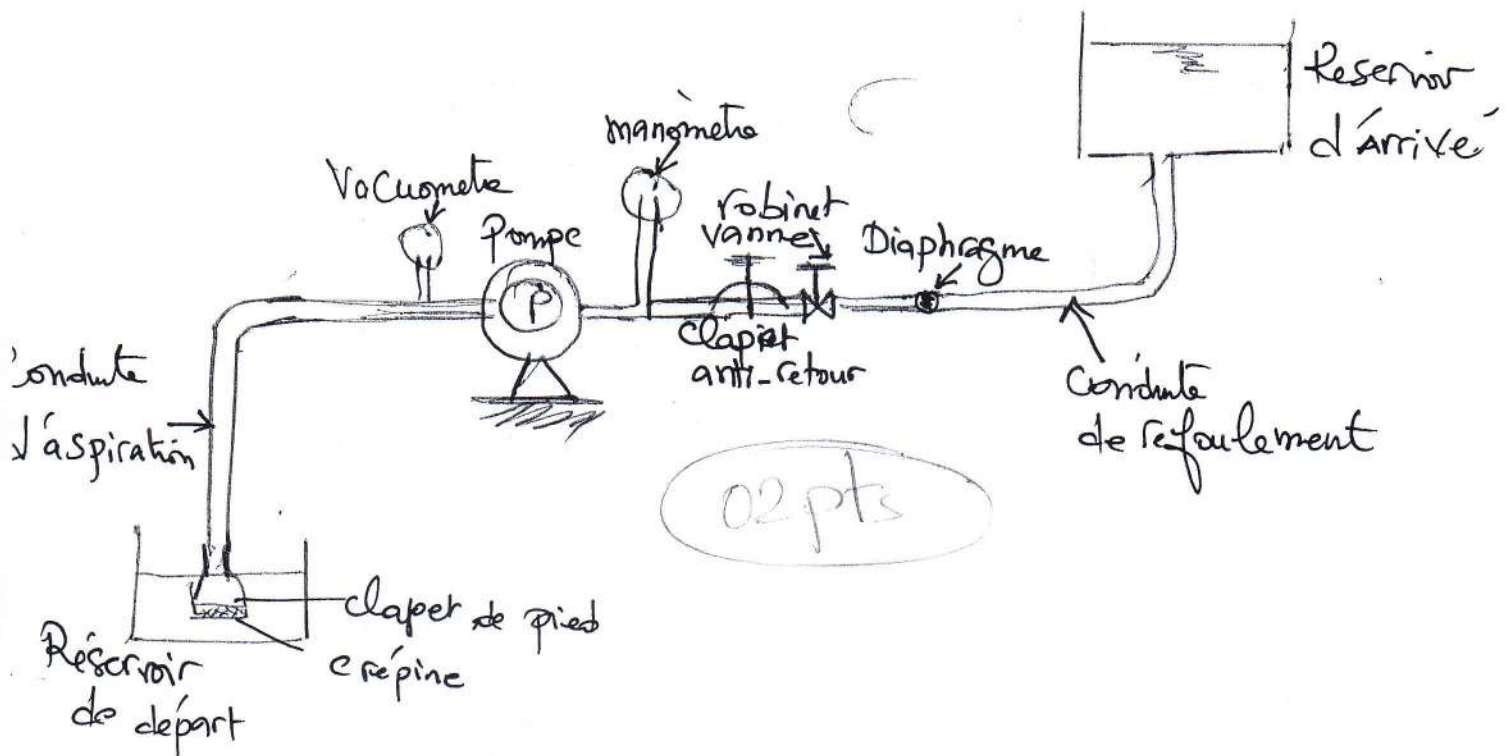 Reservoir
d'Arrivé
manomètre
Vacuometre
Pompe
P
robinet
vanne
Diaphragme
Clapet
anti-retour
Conduite
de refoulement
onduite
d'aspiration
02 pts
clapet de pied
crépine
Réservoir
de départ